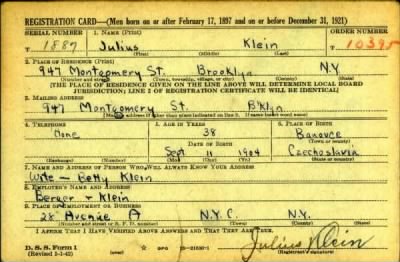 REGISTRATION CARD—(Men born on or after February 17, 1897 and on or before December 31, 1921)
SERIAL NUMBER 1. NAME (Print) ORDER NUMBER
T 1887 Julius Klein 10395
(First) (Middle) (Last)
2. PLACE OF RESIDENCE (Print)
947 Montgomery St. Brooklyn N.Y.
(Number and street) (Town, township, village, or city) (County) (State)
[THE PLACE OF RESIDENCE GIVEN ON THE LINE ABOVE WILL DETERMINE LOCAL BOARD
JURISDICTION; LINE 2 OF REGISTRATION CERTIFICATE WILL BE IDENTICAL]
3. MAILING ADDRESS
947 Montgomery St. B'klyn
[Mailing address if other than place indicated on line 2. If same insert word same]
4. TELEPHONE 5. AGE IN YEARS 6. PLACE OF BIRTH
None 38 Banovce
DATE OF BIRTH (Town or county)
Sept 11 1904 Czechoslavia
(Exchange) (Number) (Mo.) (Day) (Yr.) (State or country)
7. NAME AND ADDRESS OF PERSON WHO WILL ALWAYS KNOW YOUR ADDRESS
Wife – Betty Klein
8. EMPLOYER'S NAME AND ADDRESS
Berger + Klein
9. PLACE OF EMPLOYMENT OR BUSINESS
28 Avenue A N.Y.C. N.Y.
(Number and street or R. F. D. number) (Town) (County) (State)
I AFFIRM THAT I HAVE VERIFIED ABOVE ANSWERS AND THAT THEY ARE TRUE.
D. S. S. Form 1
(Revised 3-1-42) GPO Julius Klein